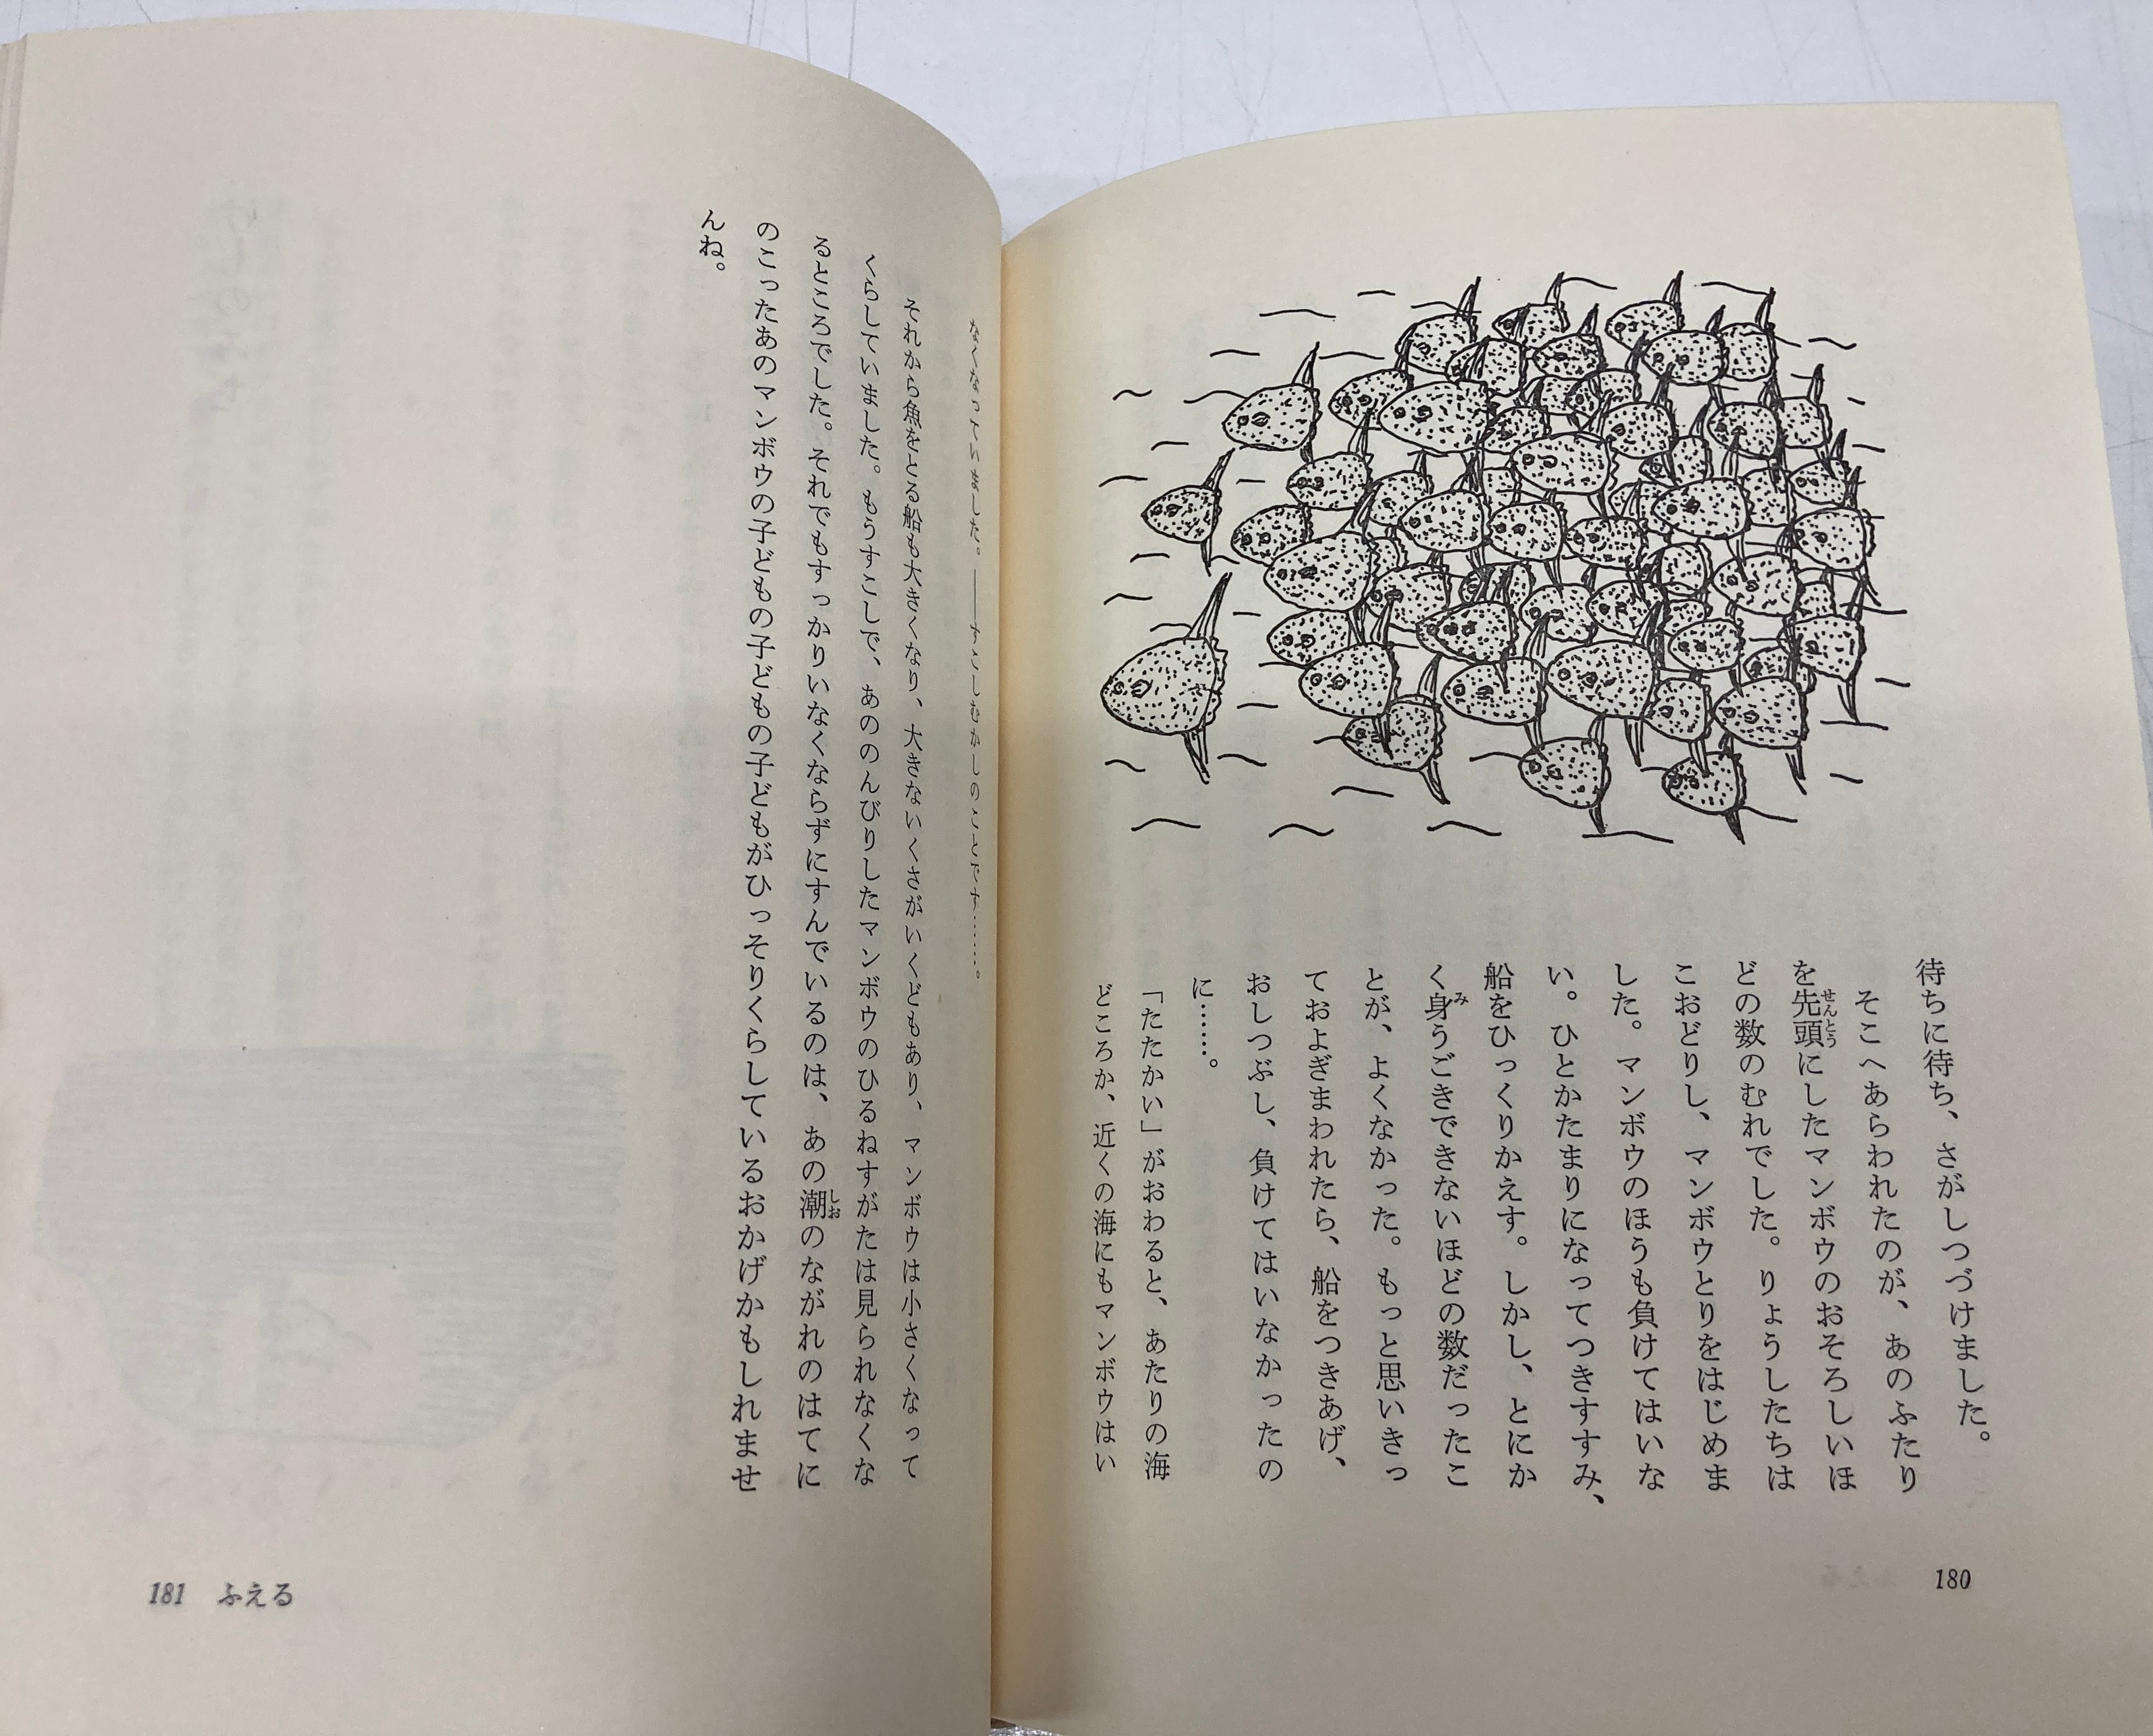 待ちに待ち、さがしつづけました。
そこへあらわれたのが、あのふたり
を先頭にしたマンボウのおそろしいほ
どの数のむれでした。りょうしたちは
こおどりし、マンボウとりをはじめま
した。マンボウのほうも負けてはいな
い。ひとかたまりになってつきすすみ、
船をひっくりかえす。しかし、とにか
く身うごきできないほどの数だったこ
とが、よくなかった。もっと思いきっ
ておよぎまわれたら、船をつきあげ、
おしつぶし、負けてはいなかったの
に……。
「たたかい」がおわると、あたりの海
どころか、近くの海にもマンボウはい
180
なくなっていました。――すこしむかしのことです……。
それから魚をとる船も大きくなり、大きないくさがいくどもあり、マンボウは小さくなって
くらしていました。もうすこしで、あののんびりしたマンボウのひるねすがたは見られなくな
るところでした。それでもすっかりいなくならずにすんでいるのは、あの潮のながれのはてに
のこったあのマンボウの子どもの子どもの子どもがひっそりくらしているおかげかもしれませ
んね。
181 ふえる